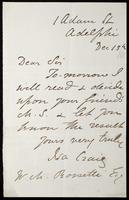 1 Adam St
Adelphi
Dec 19th
Dear Sir
To-morrow I
will read & decide
upon your friend's
M.S. & let you
know the result
yours very truly
Isa Craig
W. M. Rossetti Esq